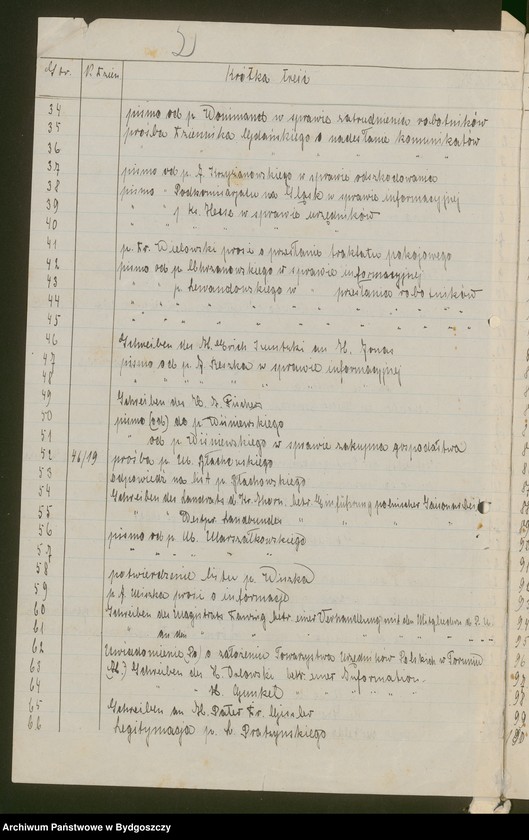 Str. N. dzien. Krótka treść
34 pismo od p. Wonimana w sprawie zatrudnienia robotników
35 prośba Dziennika Gdańskiego o nadesłanie komunikatów
36 " " " "
37 pismo od p. J. Krzyżanowskiego w sprawie odszkodowania
38 pismo " Podkomisarjatu na Śląsk w sprawie informacyjnej
39 " " ks. Hessa w sprawie urzędników
40 " " " " "
41 p. Fr. Wielowski prosi o przesłanie traktatu pokojowego
42 pismo od p. Chrzanowskiego w sprawie informacyjnej
43 " " p. Lewandowskiego w " przesłania robotników
44 " " " " " "
45 " " " " " "
46 Schreiben des H. Erich an H. Jonas
47 pismo od p. J. Reszka w sprawie informacyjnej
48 " " " "
49 Schreiben des H. Fischer
50 pismo (od) do p. Wiśniewskiego
51 " od p. Wiśniewskiego w sprawie zakupna gospodarstwa
52 46/19 prośba p. Głachowskiego
53 odpowiedź na list p. Głachowskiego
54 Schreiben des Landrats d. Kr. Thorn. betr. Einführung polnischer Saisonarbeit
55 " " Westpr. " " "
56 pismo od p. M. Marszałkowskiego
57 " " " "
58 potwierdzenie listu p. Wiszka
59 p. J. Miszka prosi o informacje
60 Schreiben des Magistrats betr. einer Verhandlung mit den Mitgliedern d. P.
61 " an den " " " " "
62 Uwiadomienie (Po) o założeniu Towarzystwa Urzędników Polskich w Toruniu
63 Schreiben des H. Dalowski betr. einer Information.
64 " " H. Gunkel " " "
65 Schreiben an H. Pater Fr. Gissler
66 Legitymacja p. L. Pratzyńskiego
Archiwum Państwowe w Bydgoszczy